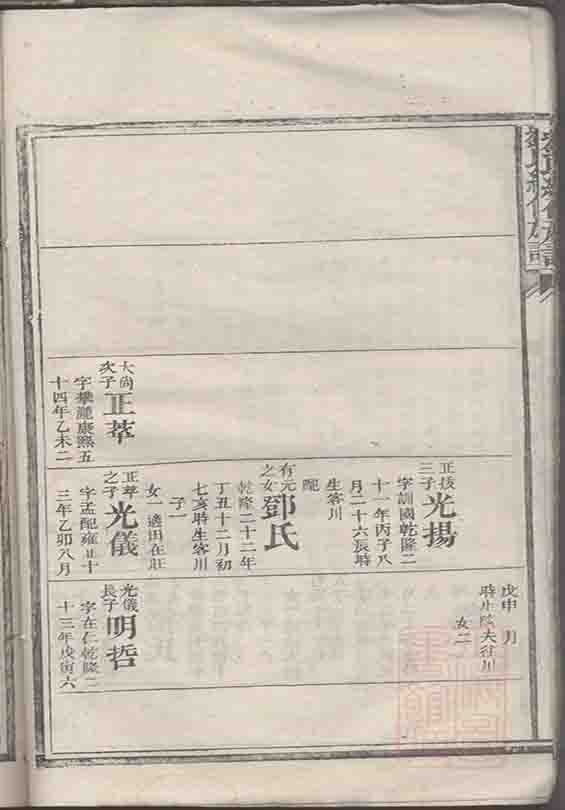 族譜
大尚
次子
正萃
字攀麗康熙五
十四年乙未二
正拔
三子
光揚
字訓國乾隆二
十一年丙子八
月二十六辰時
生客川
配
有元
之女
鄧氏
乾隆二十二年
丁丑十二月初
七亥時生客川
子一
女一適田在莊
正萃
之子
光儀
字孟配雍正十
三年乙卯八月
戊申 月
時生 夫往川
女二
光儀
長子
明哲
字在仁乾隆二
十三年戊寅六